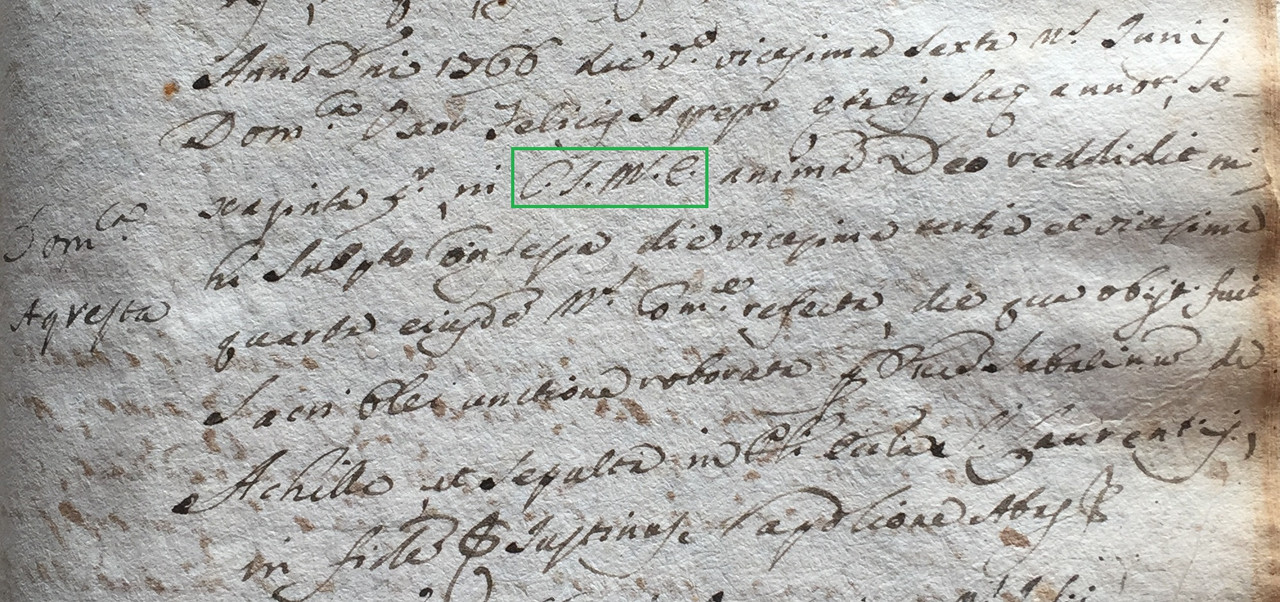 Anno Dni 1766 die vº. vicesima sexta m.s Junij
Dom.ca Uxor Felicij Agresta etatis sue annor, se-
xaginta in C.S.M.E. anima Deo reddidit mi
hi Subpto Confessa die vicesima tertia et vicesima
Dom.ca
quarta eiusdē m.s com.e refecta, die qua obijt fuit
Agresta
Sacri Olei unctione roborata p Sabatinus de
Achille et sepulta in Ecclesia S. Laurentij,
in fidē Justinus Abbs